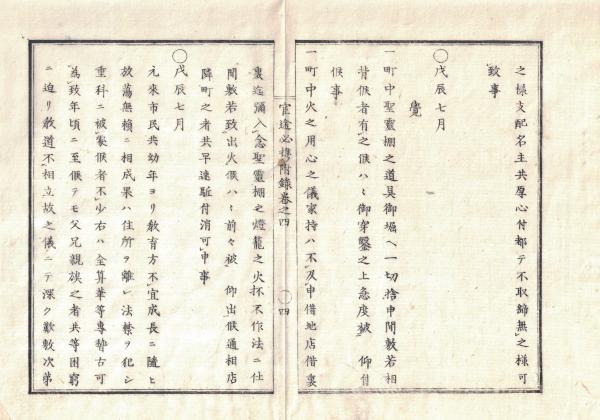 之様支配名主共厚心付都テ不取締無之様可
致事
〇戊辰七月
覚
一町中聖霊棚之道具御堀ヘ一切捨申間敷若相
背候者有之候ハヽ御穿鑿之上急度被 仰付
候事
一町中火之用心之儀家持ハ不及申借地店借裏
官途必携附録巻之四
〇四
裏迄彌入念聖霊棚之燈籠之火抔不作法ニ仕
間敷若致出火候ハヽ前々被 仰出候通相店
隣町之者共早速駈付消可申事
〇戊辰七月
元來市民共幼年ヨリ教育方不宜成長ニ随ヒ
放蕩無頼ニ相成果ハ住所ヲ離レ法禁ヲ犯シ
重科ニ被處候者不少右ハ全算筆等專勢古可
為致年頃ニ至候テモ父兄親族之者共等困窮
ニ迫リ教道不相立故之儀ニテ深ク歎敷次第